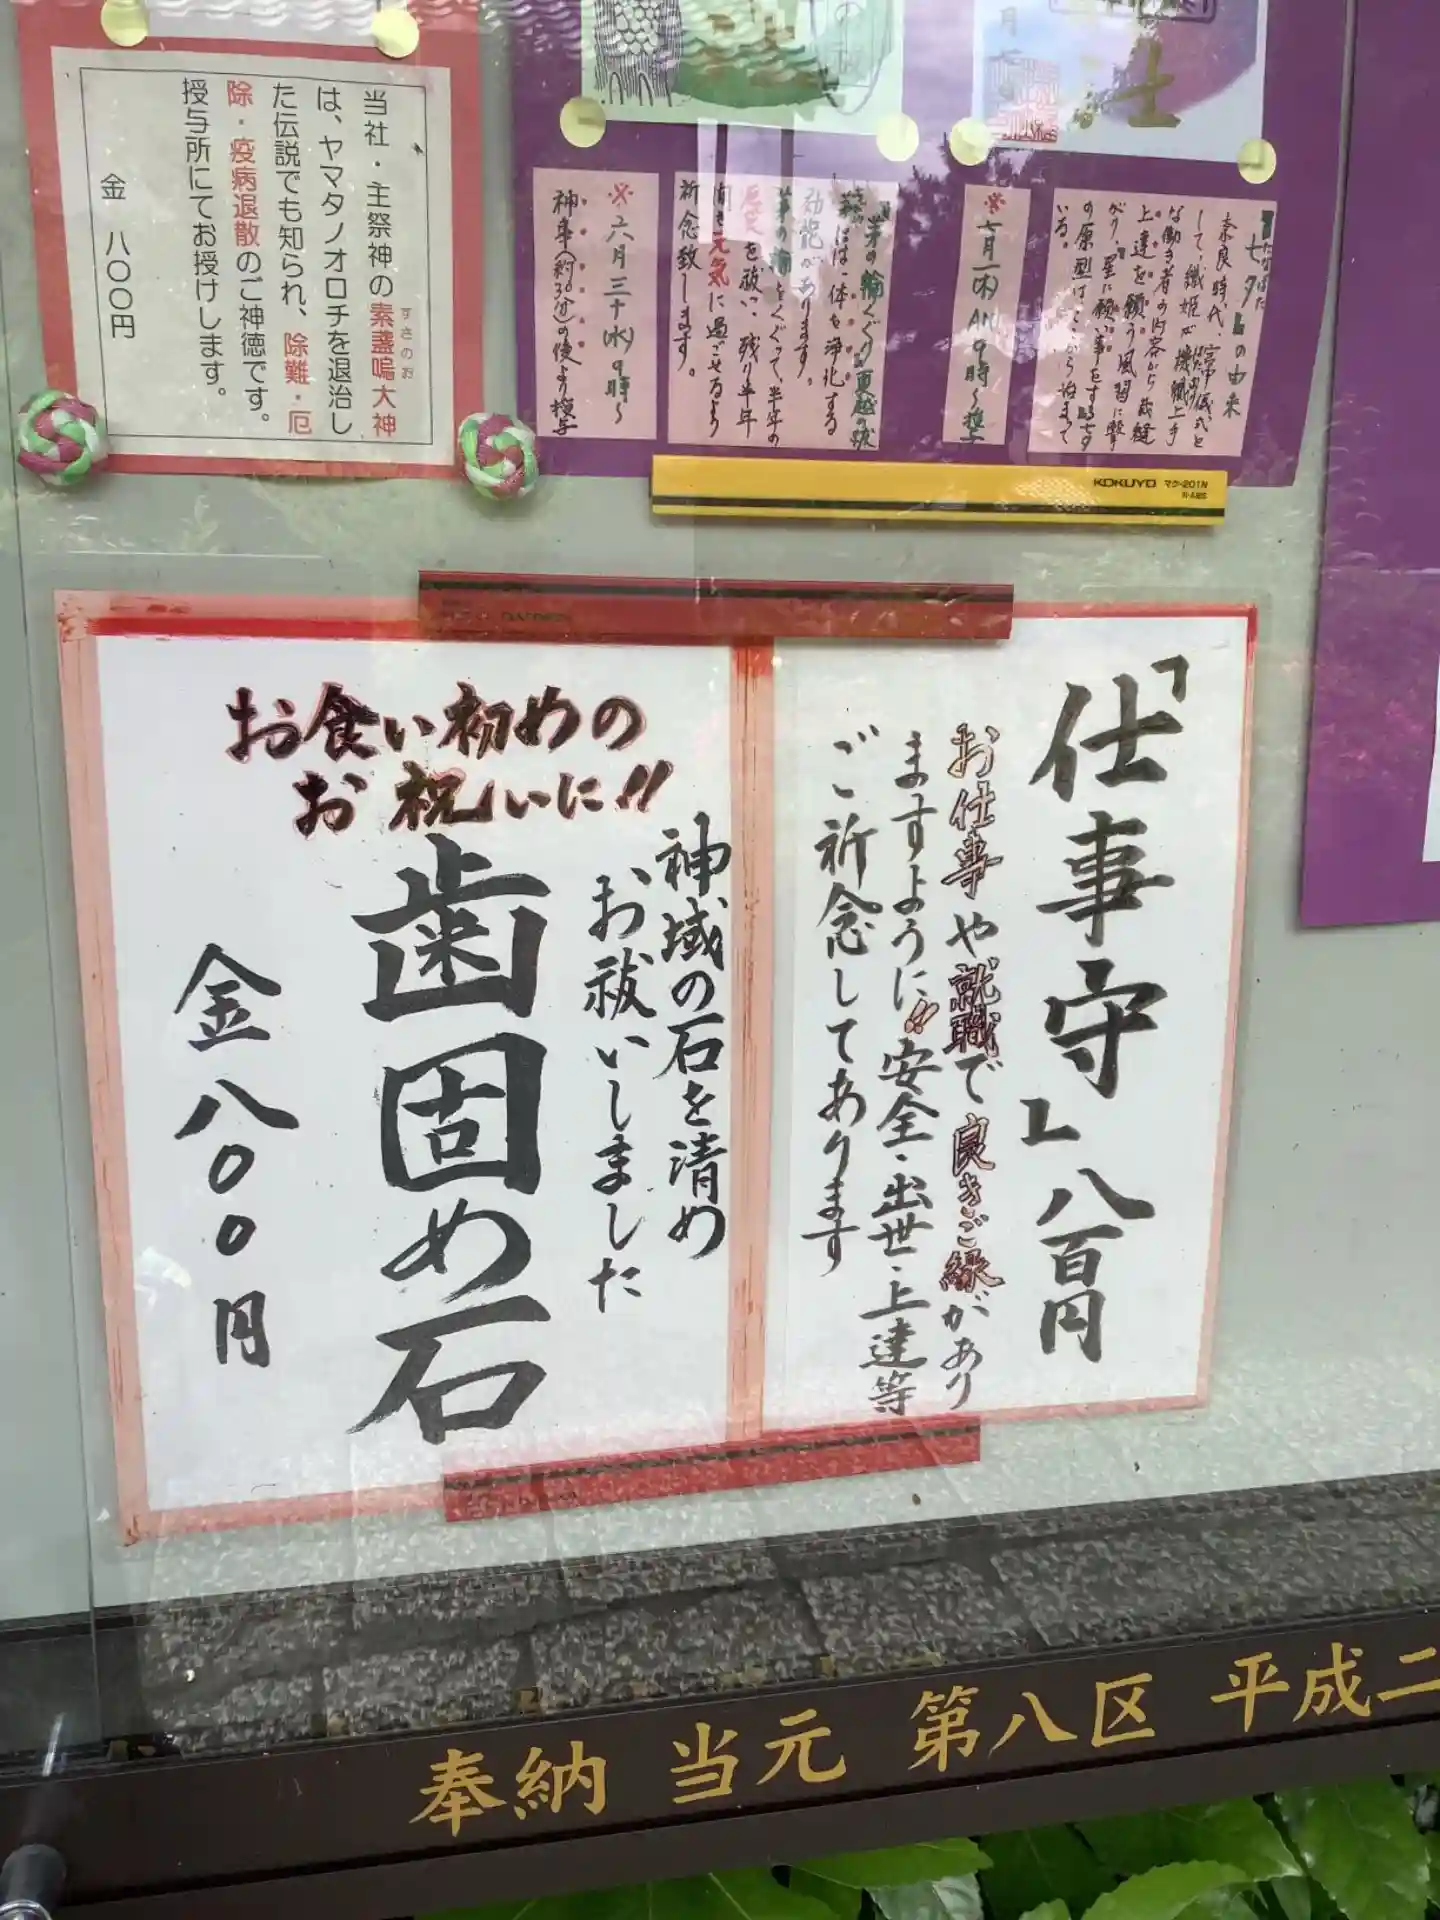 当社・主祭神の素盞嗚大神
すさのお
は、ヤマタノオロチを退治し
た伝説でも知られ、除難・厄
除・疫病退散のご神徳です。
授与所にてお授けします。
金 八〇〇円
士
月
「七夕」の由来
たなばた
奈良時代、宮中儀式と
して、織姫が機織上手
な働き者の内容から裁縫
上達を願う風習に繋
がり、『星に願い事をする七夕』
の原型はここから始まって
いる。
※七月一(木)AM9時〜授与
『茅の輪くぐり』夏越の祓
には一体を浄化する
効能があります。
茅の輪をくぐって、半年の
厄災を祓い、残り半年
間を元気に過ごせるよう
祈念致します。
※六月三十(水)9時〜
神事(約30分)の後より授与
KOKUYO マク-201N
「仕事守」八百円
お仕事や就職で良きご縁があり
ますように!!安全・出世・上達等
ご祈念してあります
お食い初めの
お祝いに!!
神域の石を清め
お祓いしました
歯固め石
金八〇〇円
奉納 当元 第八区 平成二